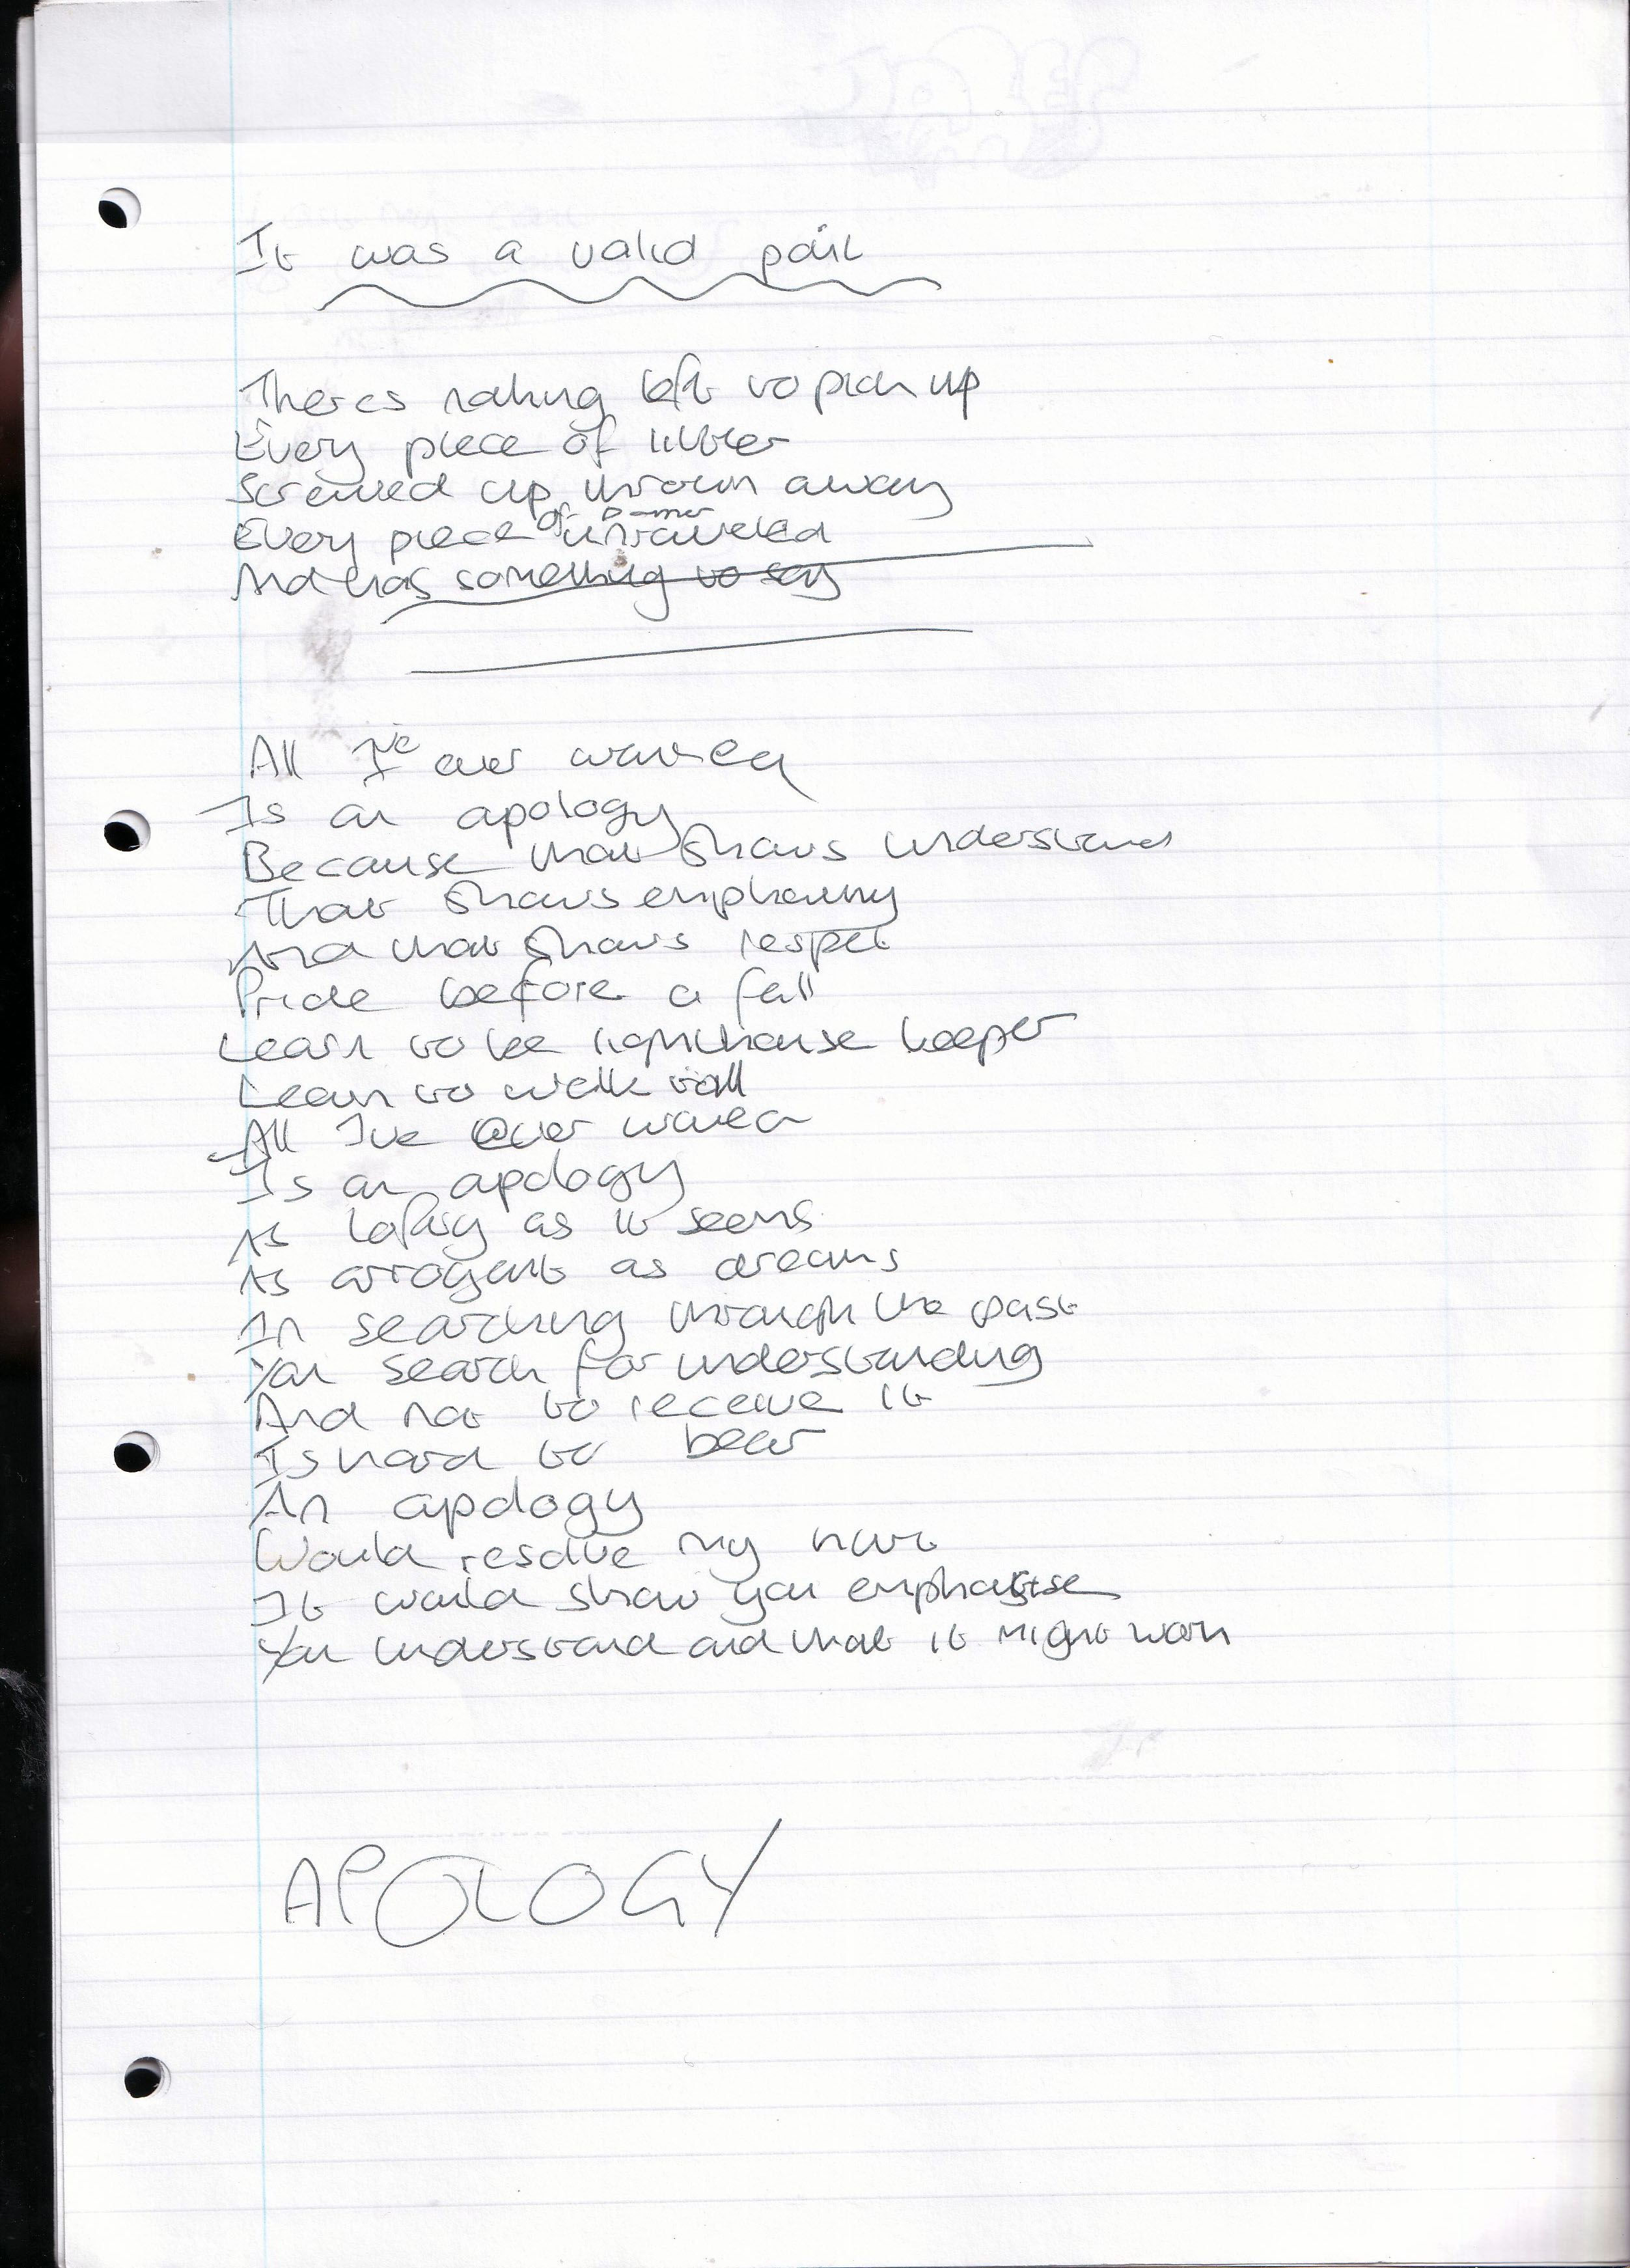 It was a valid point
Theres nothing left to pick up
Every piece of litter
Screwed up thrown away
Every piece of unraveled
And has something to say
All I've ever wanted
Is an apology
Because that shows understand
That shows emphathy
And that shows respect
Pride before a fall
Learn to be lighthouse keeper
Learn to walk tall
All I've ever wanted
Is an apology
As lofty as it seems
As arrogant as dreams
In searching through the past
You search for understanding
And not to receive it
Is hard to bear
An apology
Would resolve my hurt
It would show you emphatise
You understand and that it might work
APOLOGY